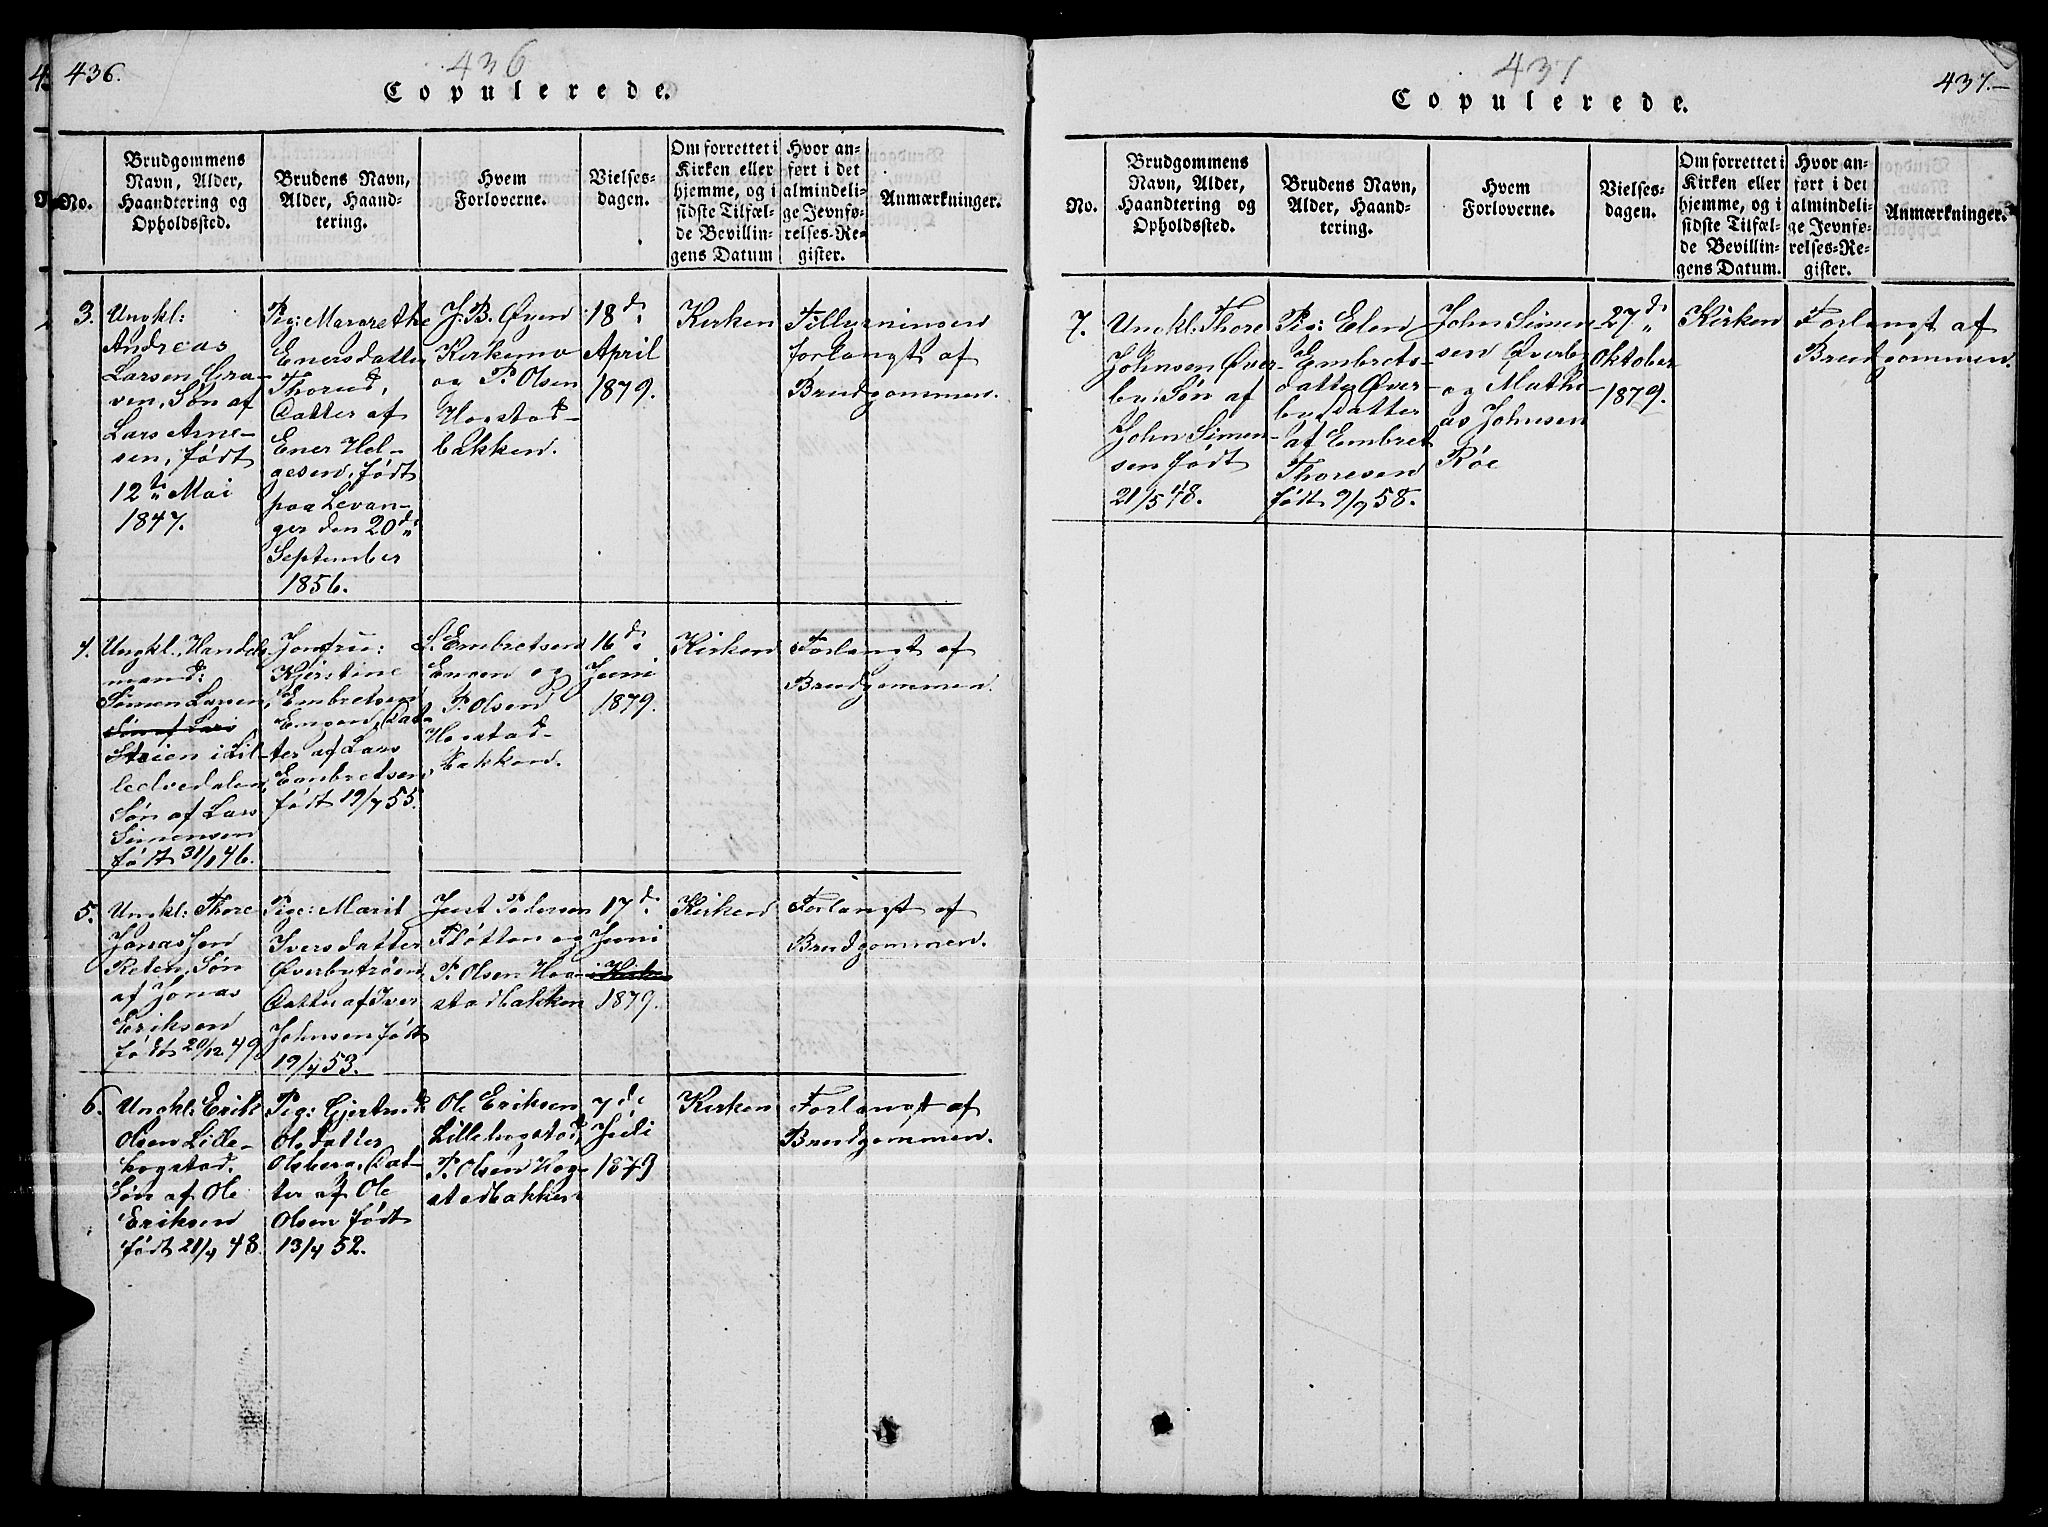 436.
436
Copulerede.
No.
Brudgommens
Navn, Alder,
Haandtering og
Opholdssted.
Brudens Navn,
Alder, Haand-
tering.
Hvem
Forloverne.
Vielses-
dagen.
Om forrettet i
Kirken eller
hjemme, og i
sidste Tilfæl-
de Bevillin-
gens Datum
Hvor an-
ført i det
almindeli-
ge Jevnfø-
relses-Re-
gister.
Anmærkninger.
3.
Ungkl:
Andreas
Larsen Gra-
ven, Søn af
Lars Arne-
sen, født
12te Mai
1847.
Pig: Margrethe
Enersdatter
Thorud,
Datter af
Ener Hel-
gesen, født
paa Levan-
ger den 20de
September
1856.
J. B. Øyen
Kirkemo
og P. Olsen
Hogstad-
bakken.
18de
April
1879.
Kirken
Tillysningen
forlangt af
Brudgommen.
4.
Ungkl. Handels
mand:
Simen Larsen,
Søn af Lars
Steien i Lil-
leelvedalen,
Søn af Lars
Simensen
født 31/1 46.
Jomfru:
Kjerstine
Embretsen
Engen, Dat-
ter af Lars
Embretsen,
født 19/7 55.
L. Embretsen
Engen og
P. Olsen
Hogstad-
bakken.
16de
Juni
1879.
Kirken
Forlangt af
Brudgommen.
5.
Ungkl: Thore
Jonassen
Reten, Søn
af Jonas
Eriksen
født 20/12 49.
Pige: Marit
Iversdatter
Øverbytrøen,
Datter af Iver
Johnsen født
19/4 53.
Just Pedersen
Pløtten og
P. Olsen Hog-
stadbakken
17de
Juni
i Kirken
1879.
Kirken
Forlangt af
Brudgommen.
6.
Ungkl: Erik
Olsen Lille-
hogstad.
Søn af Ole
Eriksen
født 21/4 48.
Pig: Gjertrud
Olsdatter
Olsberg, Dat-
ter af Ole
Olsen født
13/4 52.
Ole Eriksen
Lillehogstad,
P. Olsen Hog-
stadbakken
7de
Juli
1879
Kirken
Forlangt af
Brudgommen.
437
437.
Copulerede.
No.
Brudgommens
Navn, Alder,
Haandtering og
Opholdssted.
Brudens Navn,
Alder, Haand-
tering.
Hvem
Forloverne.
Vielses-
dagen.
Om forrettet i
Kirken eller
hjemme, og i
sidste Tilfæl-
de Bevillin-
gens Datum.
Hvor an-
ført i det
almindeli-
ge Jevnfø-
relses-Re-
gister.
Anmærkninger.
7.
Ungkl. Thore
Johnsen Øver-
by: Søn af
John Simen-
sen født
21/5 48.
Pig: Elen
Embrets-
datter Øver-
by, Datter
af Embret
Thoresen
født 9/9 58.
John Simen
sen Øverby
og Mathi-
as Johnsen
Røe
27de
Oktober
1879.
Kirken
Forlangt af
Brudgommen.